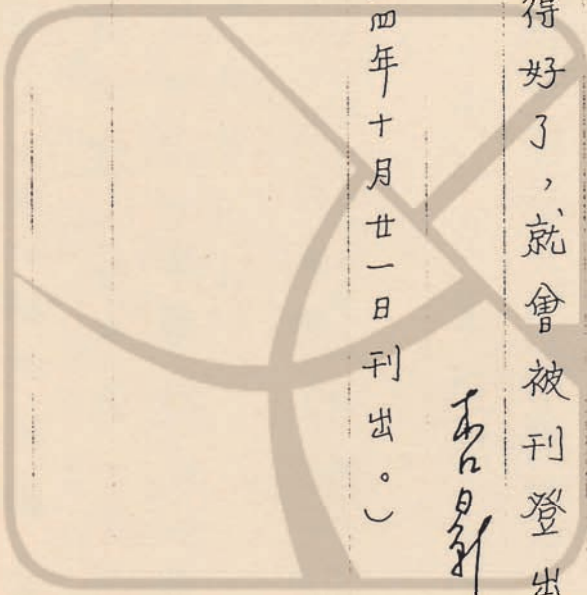 得好了，就會被刊登出
四年十月廿一日刊出。）